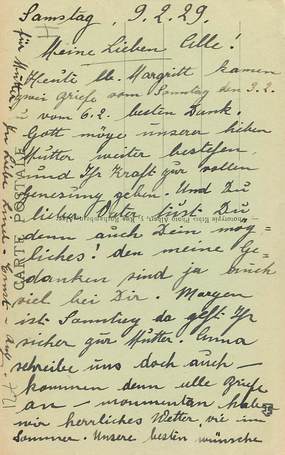 Samstag, 9.2.29.
Meine Lieben Alle!
Heute lb. Margritt kamen
zwei Briefe vom Sonntag den 3.2.
u vom 6.2. besten Dank.
Gott möge unserer lieben
Mutter weiter bestehen
und Ihr Kraft zur vollen
Genesung geben. Und Du
lieber Vater tust Du
denn auch Dein mög=
liches! den meine Ge=
danken sind ja auch
viel bei Dir. Morgen
ist Sonntag da geht Ihr
sicher zur Mutter. Anna
schreibe uns doch auch –
kommen denn alle Briefe
an – momentan haben
wir herrliches Wetter, wie im
Sommer. Unsere besten Wünsche
für Mutter
CARTE POSTALE